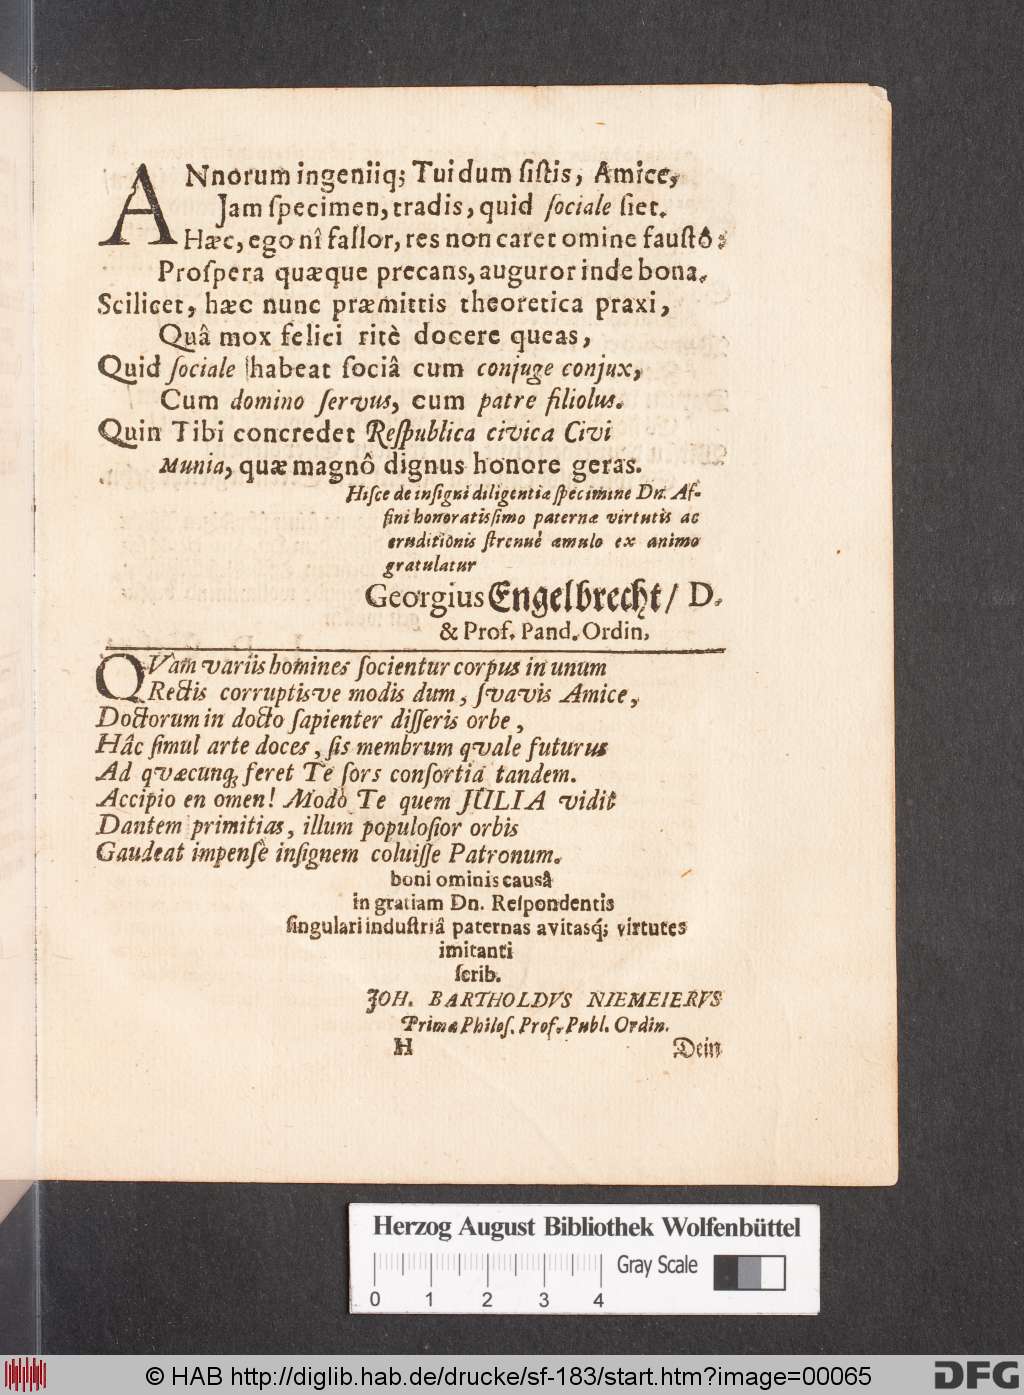 ANnorum ingeniiq; Tui dum ſiſtis, Amice,
Jam ſpecimen, tradis, quid ſociale ſiet.
Hæc, ego nî fallor, res non caret omine fauſtô;
Proſpera quæque precans, auguror inde bona.
Scilicet, hæc nunc præmittis theoretica praxi,
Quâ mox felici ritè docere queas,
Quid ſociale habeat ſociâ cum conjuge conjux,
Cum domino ſervus, cum patre filiolus.
Quin Tibi concredet Reſpublica civica Civi
Munia, quæ magnô dignus honore geras.
Hiſce de inſigni diligentiæ ſpecimine Dn. Af-
fini honoratisſimo paternæ virtutis ac
eruditionis ſtrenuè æmulo ex animo
gratulatur
Georgius Engelbrecht / D.
& Prof. Pand. Ordin,
QVam variis homines ſocientur corpus in unum
Rectis corruptisve modis dum, ſvavis Amice,
Doctorum in docto ſapienter diſſeris orbe,
Hâc ſimul arte doces, ſis membrum qvale futurus
Ad qvæcunq; feret Te ſors conſortia tandem.
Accipio en omen! Modò Te quem JULIA vidit
Dantem primitias, illum populoſior orbis
Gaudeat impenſè inſignem coluiſſe Patronum.
boni ominis causâ
in gratiam Dn. Reſpondentis
ſingulari induſtriâ paternas avitasq; virtutes
imitanti
ſcrib.
JOH. BARTHOLDVS NIEMEIERVS
Primæ Philoſ. Prof. Publ. Ordin.
H Dein
Herzog August Bibliothek Wolfenbüttel
Gray Scale
0 1 2 3 4
© HAB http://diglib.hab.de/drucke/sf-183/start.htm?image=00065
DFG